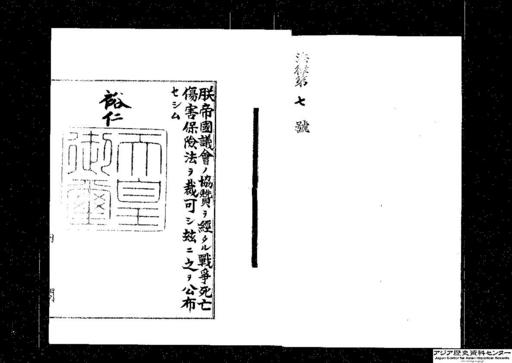 法律第七號
朕帝國議會ノ協贊ヲ經タル戰爭死亡
傷害保險法ヲ裁可シ玆ニ之ヲ公布
セシム
裕仁
天皇
御璽
内閣
アジア歴史資料センター
Japan Center for Asian Historical Records